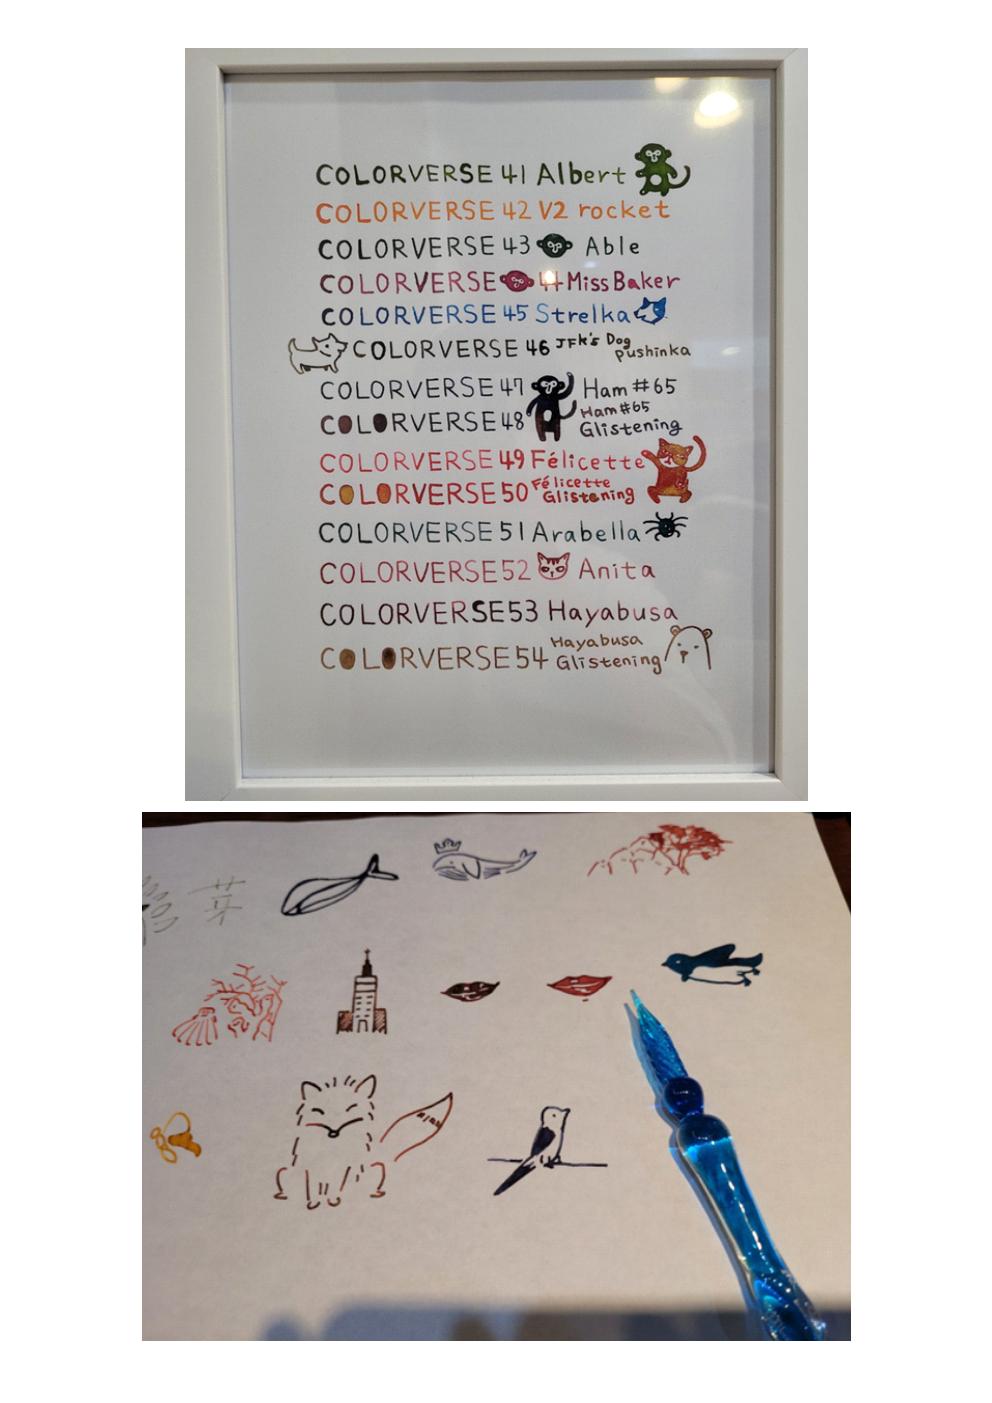 COLORVERSE 41 Albert
COLORVERSE 42 V2 rocket
COLORVERSE 43 Able
COLORVERSE 44 Miss Baker
COLORVERSE 45 Strelka
COLORVERSE 46 JFK's Dog pushinka
COLORVERSE 47 Ham #65
COLORVERSE 48 Ham #65 Glistening
COLORVERSE 49 Félicette
COLORVERSE 50 Félicette Glistening
COLORVERSE 51 Arabella
COLORVERSE 52 Anita
COLORVERSE 53 Hayabusa
COLORVERSE 54 Hayabusa Glistening
芽